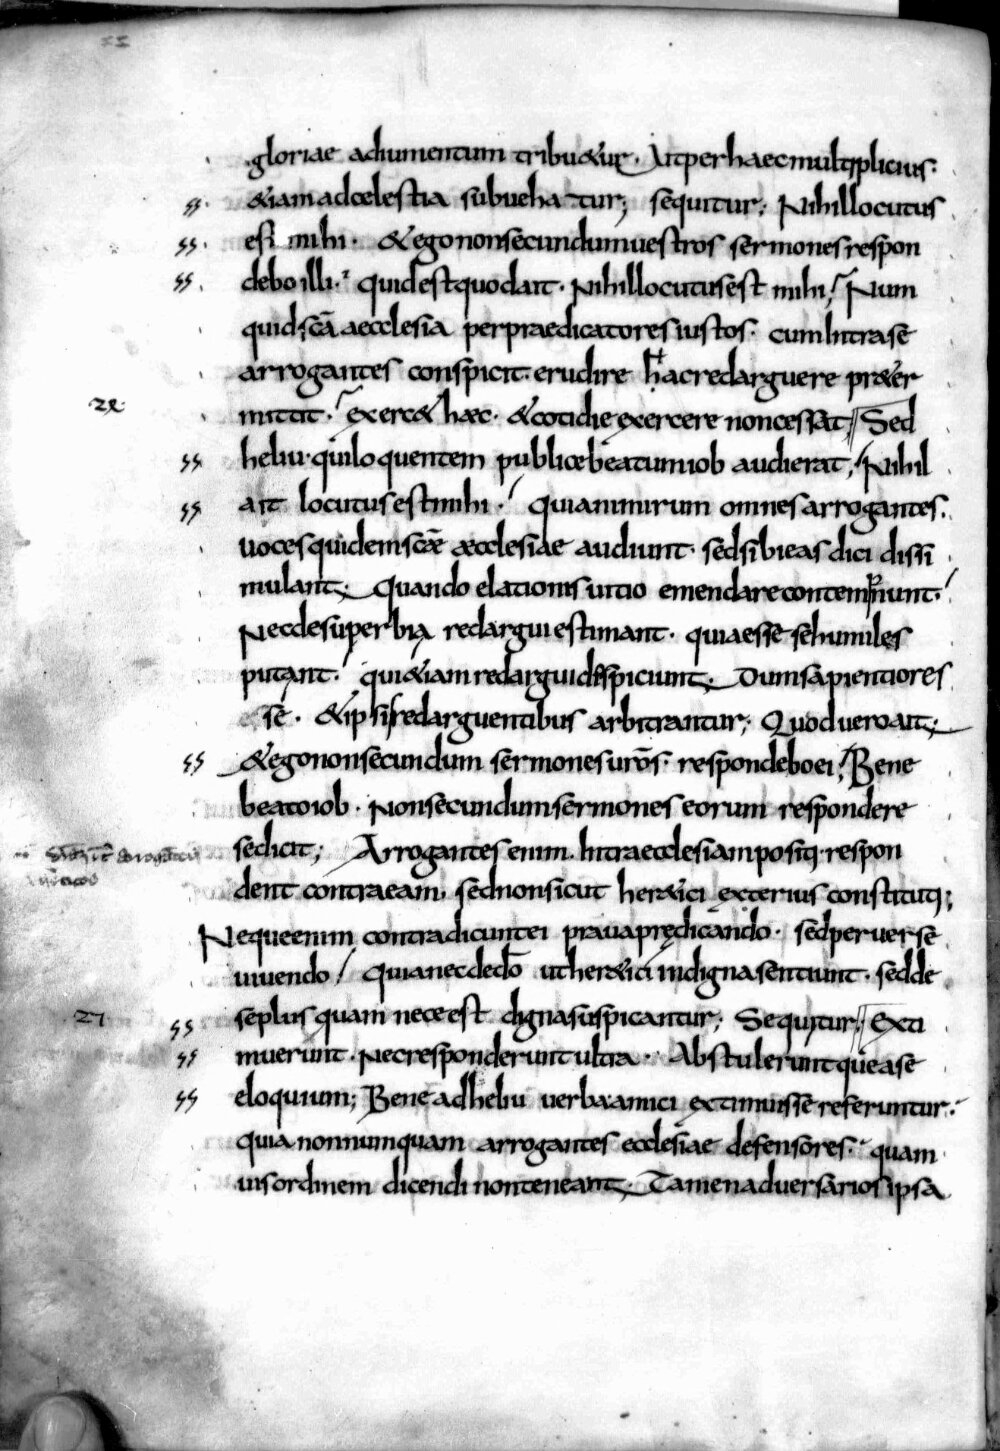 gloriae adiumentum tribu&ur. Ut per haec multiplicius.
&iam ad cęlestia subuehatur; sequitur; Nihil locutus
est mihi. & ego non secundum uestros sermones respon
debo illi. quid est quod ait. Nihil locutus est mihi; Num
quid scā aecclesia per praedicatores iustos. cum intra se
arrogantes conspicit. erudire hac redarguere pr&er
mittit. exerc& haec. & cotidie exercere non cessat; Sed
heliu. qui loquentem publice beatum iob audierat; Nihil
ait locutus est mihi. Quia nimirum omnes arrogantes.
uoces quidem scae aecclesiae audiunt. sed sibi eas dici dissi
mulant; Quando elationis uitio emendare contempnunt.
Nec de superbia redargui estimant. quia esse se humiles
putant. qui &iam redargui despiciunt; Dum sapientiores
esse. & ipsis redarguentibus arbitrantur; Quod uero ait;
& ego non secundum sermones urōs. respondebo ei; Bene
beato iob. Non secundum sermones eorum respondere
se dicit; Arrogantes enim. Intra ecclesiam positi. respon
dent contra eam. sed non sicut her&ici exterius constituti;
Neque enim contradicunt ei praua prędicando. sed peruerse
uiuendo. Quia nec de dō ut her&ici indigna sentiunt. sed de
se plus quam necest digna suspicantur; Sequitur; Exti
muerunt. Nec responderunt ultra. Abstulerunt que a se
eloquium; Bene ad heliu uerba amici extimuisse referuntur.
quia nonnumquam arrogantes ecclesiae defensores. quam
uis ordinem dicendi non teneant; Tamen aduersarios ipsa
27